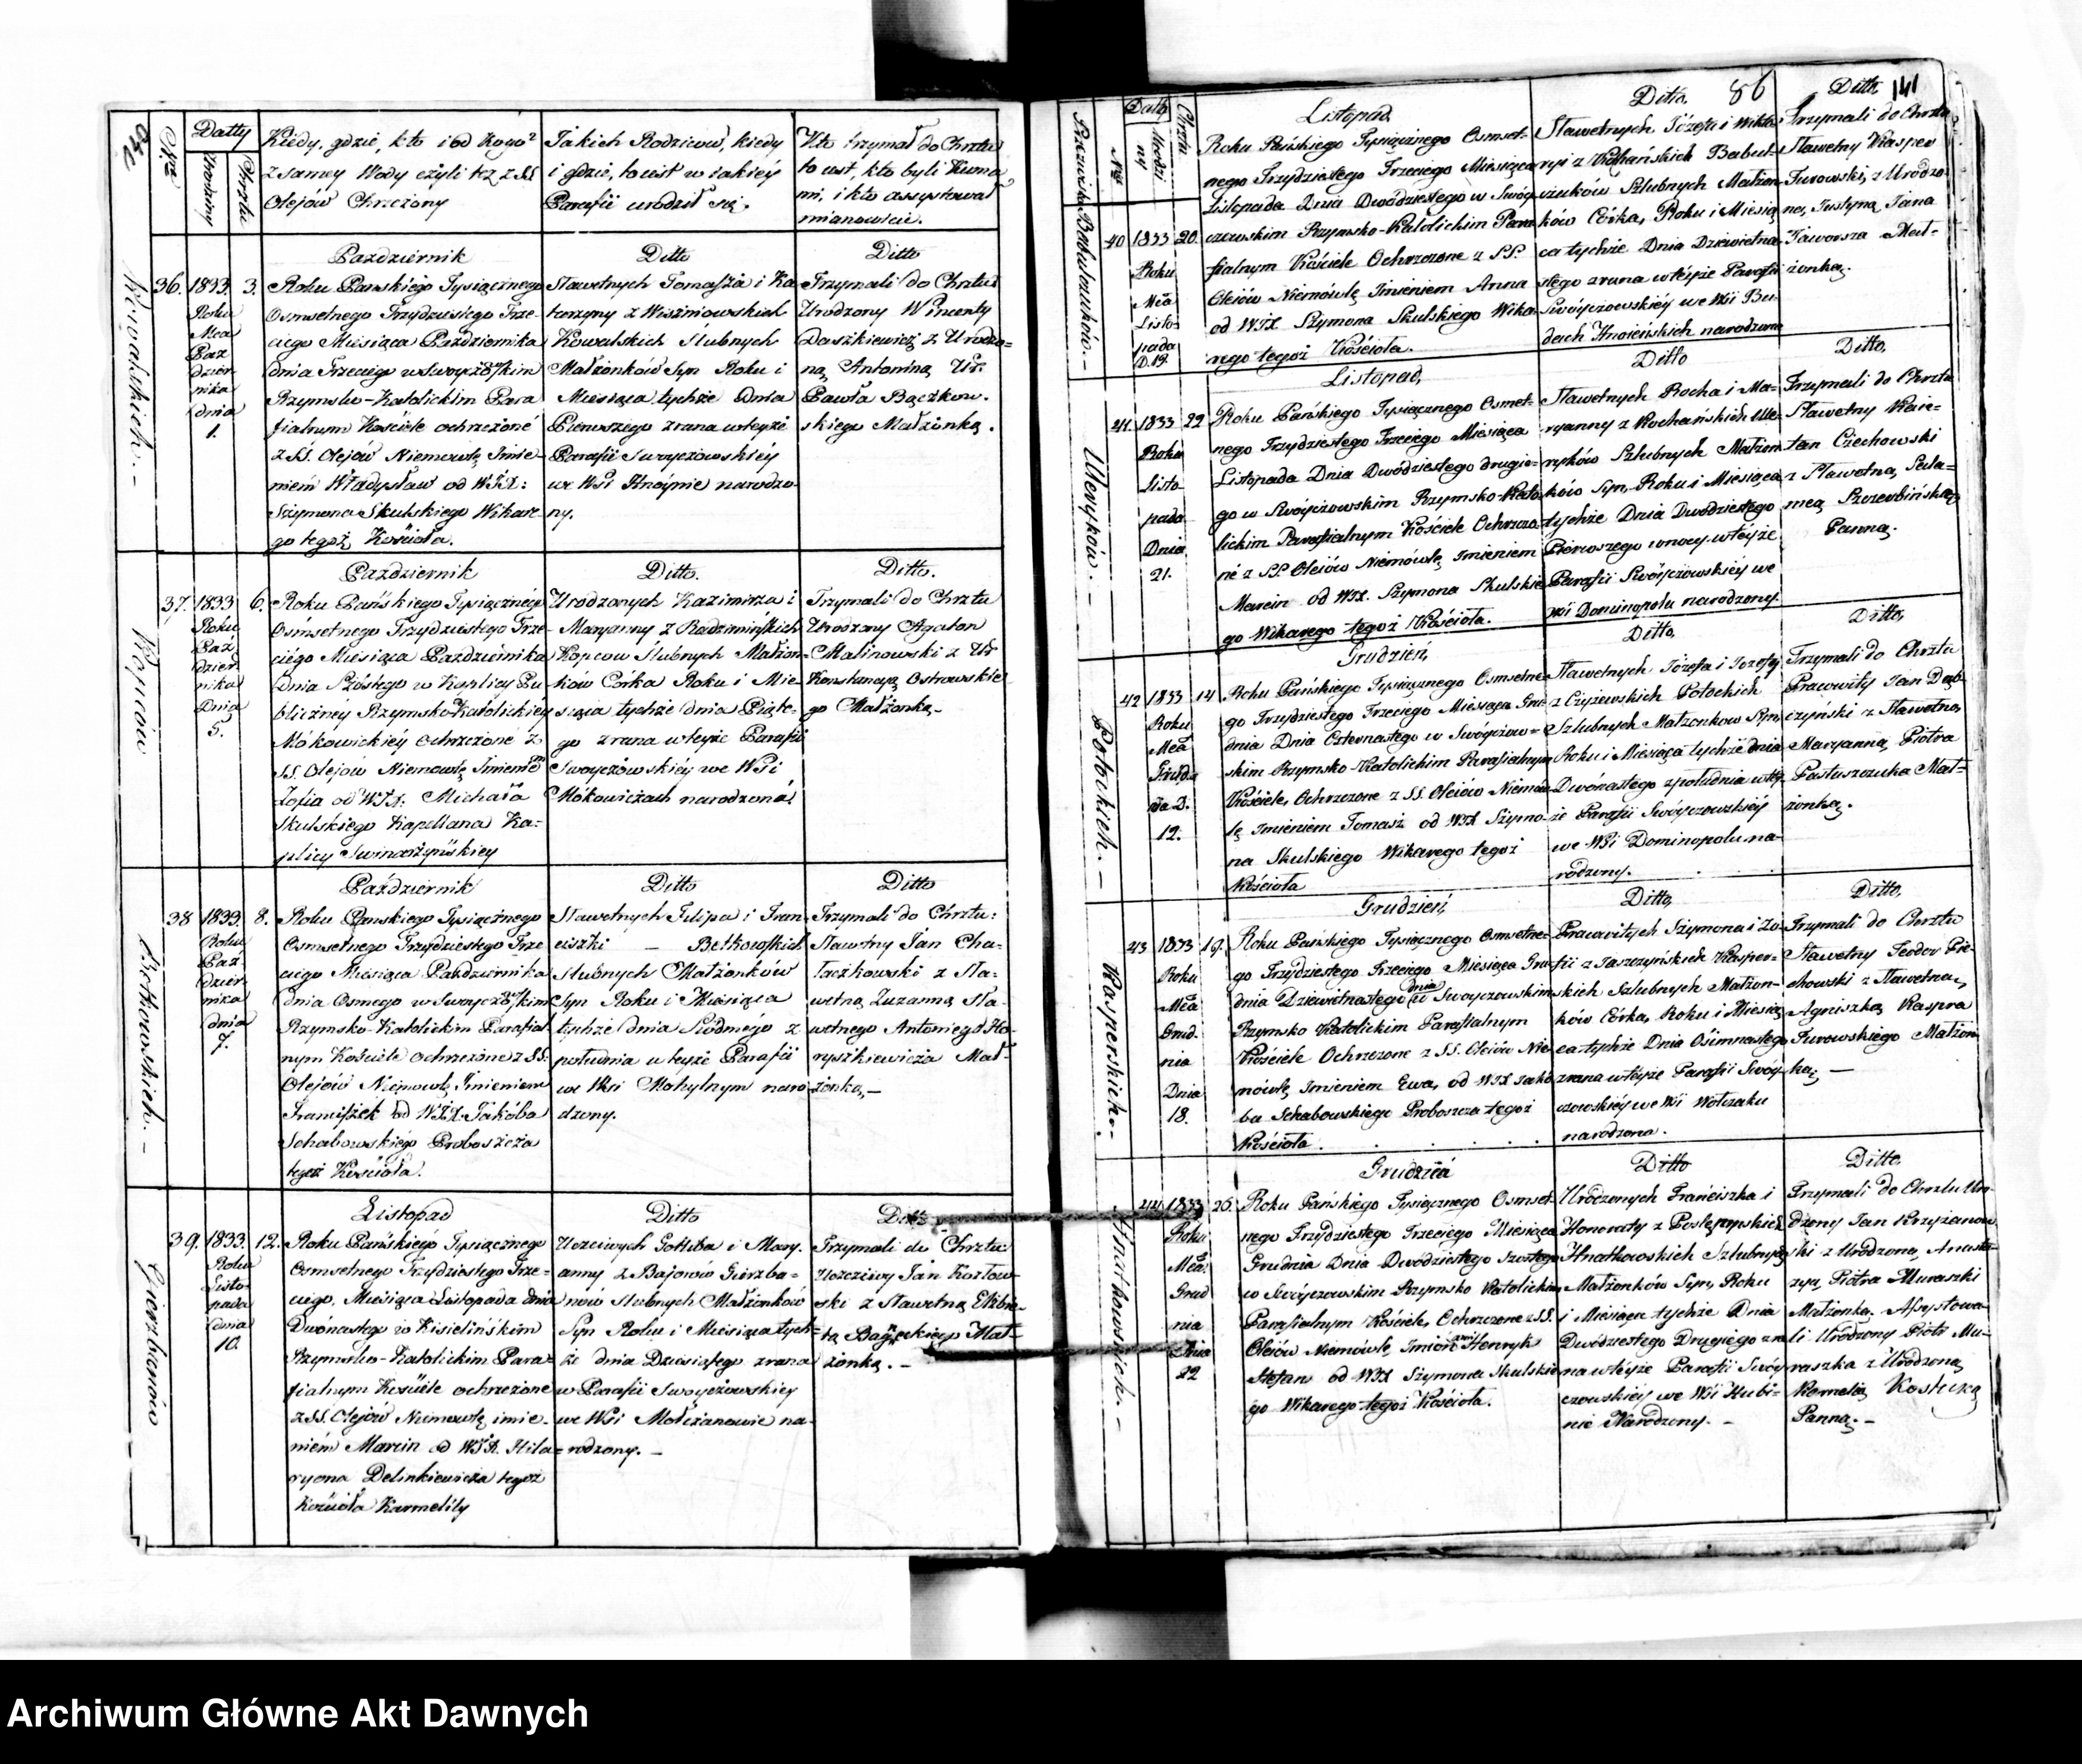 Datty
Nra
Urodziny
Chrztu
Kiedy, gdzie, kto i od Kogo
z samey Wody czyli tez z SS
Olejów Chrzczony
Jakich Rodziców, kiedy
i gdzie, to iest w iakiéy
Parafii urodził się.
Kto trzymał do Chrztu
to iest, kto byli Kuma
mi, i kto assystował
mianowicie.
Kowalskich.
36.
1833.
Roku
Mca
Paz
dzier
nika
dnia
1.
3.
Pazdziernik
Roku Panskiego Tysiącznego
Osmsetnego Trzydziestego Trze-
ciego Miesiąca Pazdziernika
dnia Trzeciego w Swoyczowskim
Rzymsko-Katolickim Para
fialnym Kościele ochrzczoné
z SS. Olejów Niemowlę Imie-
niem Władysław od WJX:
Szymona Skulskiego Wikare
go tegoż Kościoła.
Ditto
Sławetnych Tomasza i Ka
tarzyny z Wiszniowskich
Kowalskich Slubnych
Małżonków Syn Roku i
Miesiąca tychże dnia
Pierwszego zrana w teyże
Parafii Swoyczowskiéy
we Wsi Hnóynie narodzo
ny.
Ditto
Trzymali do Chrztu
Urodzony Wincenty
Daszkiewicz z Urodzo-
ną Antoniną Ur.
Pawła Bączkow-
skiego Małżonką.
Kopciów
37.
1833
Roku
Paź
dzier
nika
Dnia
5.
6.
Pazdziernik
Roku Pańskiego Tysiącznégo
Osmsetnego Trzydziestego Trze-
ciégo Miesiąca Pazdziernika
Dnia Szóstego w Kaplicy Pu
bliczney Rzymsko-Katolickiey
Mókowickiéy ochrzczone z
SS. Olejów Niemowlę Imieniem
Zofia od WJX. Michała
Skulskiego Kapellana Ka-
plicy Swinarzyńskiey
Ditto.
Urodzonych Kazimirza i
Maryanny z Radzimińskich
Kopcow Slubnych Małżon-
ków Córka Roku i Mie
siąca tychże dnia Piąte-
go zrana w teyże Parafii
Swoyczowskiéy we Wsi
Mókowiczach narodzona
Ditto.
Trzymali do Chrztu
Urodzony Agaton
Malinowski z Ur
Konstancyą Ostrowskie
go Małżonką.
Betkowskich.
38
1833.
Roku
Paź
dzier
nika
dnia
7.
8.
Paździérnik
Roku Panskiego Tysiącznego
Osmsetnego Trzydziestego Trze
ciego Miesiąca Pazdziernika
dnia Osmego w Swoyczowskim
Rzymsko-Katolickim Parafial
nym Kościele ochrzczone z SS.
Olejów Niemowlę Imieniem
Franciszek od WJX. Jakóba
Schabowskiégo Proboszcza
tegoż Kościoła.
Ditto
Sławetnych Filipa i Fran
ciszki — Betkowskich
Slubnych Małżonków
Syn Roku i Miesiąca
tychże dnia Siódmego z
południa w teyże Parafii
we Wsi Mohylnym naro
dzony.
Ditto
Trzymali do Chrztu:
Sławetny Jan Cha-
Taczkowski z Sła-
wetną Zuzanną Sła-
wetnego Antoniego Ho-
ryszkiewicza Mał-
żonką,—
Gierzbanów
39.
1833.
Roku
Listo-
pada
dnia
10.
12.
Listopad
Roku Pańskiégo Tysiącznégo
Osmsetnego Trzydziestego Trze-
ciego, Miesiąca Listopada dnia
Dwónastego w Kisielińskim
Rzymsko-Katolickim Para-
fialnym Kościele ochrzczone
z SS. Olejów Niemowlę imie-
niém Marcin od WJX. Hila-
ryona Delinkiewicza tegoż
Kościoła Karmelity
Ditto
Uczciwych Gotliba i Mary-
anny z Bajonów Gierzba-
nów slubnych Małżonków
Syn Roku i Miesiąca tych-
że dnia Dziesiątego zrana
w Parafii Swoyczowskiéy
we Wsi Mołczanowie na-
rodzony. —
Ditto
Trzymali do Chrztu
Uczciwy Jan Kozłow-
ski z Sławetną Elżbie-
tą Mał-
żonką. —
Datta
Nra
Urodzi
ny
Chrztu
86
141
Babulczuków.
40
1833
Roku
Mca
Listo-
pada
D. 19.
20.
Listopad
Roku Pańskiego Tysiącznego Osmset-
nego Trzydziestego Trzeciego Miesiąca
Listopada Dnia Dwódziestego w Swóy-
czowskim Rzymsko-Katolickim Para
fialnym Kościele Ochrzczone z SS.
Oleiów Niémówlę Imieniem Anna
od WJX Szymona Skulskiego Wika-
rego tegoż Kościoła.
Ditto,
Sławetnych Józefa i Wikto-
ryi z Kochańskich Babul-
czuków Szlubnych Małżon-
ków Córka, Roku i Miesią
ca tychże Dnia Dziewietna
stego zrana w téyże Parafii
Swóyczowskiéy we Wsi Bu-
dach Hnoieńskich narodzona
Ditto,
Trzymali do Chrztu
Sławetny Kasper
Turowski, z Urodzo-
ną, Justyną Jana
Jaworsza Mał-
żonką.
Uleryków.
41.
1833
Roku
Listo-
pada
Dnia
21.
22
Listopad,
Roku Pańskiego Tysiącznego Osmset-
nego Trzydziestego Trzeciego Miesiąca
Listopada Dnia Dwódziestego drugie-
go w Swóyczowskim Rzymsko-Kato
lickim Parafialnym Kościele Ochrzczo
né z SS. Oleiów Niémówlę, Imieniem
Marcin od WJX. Szymona Skulskie
go Wikarego tegoż Kościoła.
Ditto
Sławetnych Rocha i Ma-
ryanny z Kochańskich Ule-
ryków Szlubnych Małżon
ków Syn, Roku i Miesiąca
tychże Dnia Dwódziestego
Pierwszego w nocy w téyże
Parafii Swóyczowskiéy we
Wsi Dominopolu narodzony.
Ditto,
Trzymali do Chrztu
Sławetny Kaie-
tan Czechowski
z Sławetną, Sala-
meą Szczerbińską
Panną.
Potockich.
42
1833
Roku
Mca
Grud
nia D.
12.
14
Grudzień,
Roku Pańskiego Tysiącznego Osmsetne
go Trzydziestego Trzeciego Miesiąca Gru
dnia Dnia Czternastego w Swóyczow-
skim Rzymsko-Katolickim Parafialnym
Kościele, Ochrzczone z SS. Oleiów Niémów
lę Imieniem Tomasz od WJX Szymo-
na Skulskiego Wikarego tegoż
Kościoła
Ditto,
Sławetnych Józefa i Jozefy
z Czyżewskich Potockich
Szlubnych Małżonkow Syn,
Roku i Miesiąca tychże dnia
Dwónastego z południa w téy
że Parafii Swóyczowskiéy
we Wsi Dominopolu na-
rodzony.
Ditto,
Trzymali do Chrztu
Pracowity Jan Dąb-
czyński z Sławetną,
Maryanną Piotra
Pastuszczuka Mał-
żonką.
Kasperskich.
43
1833
Roku
Mca
Grud.
nia
Dnia
18.
19.
Grudzień,
Roku Pańskiego Tysiącznego Osmsetne-
go Trzydziestego Trzeciego Miesiąca Gru-
dnia Dziewiętnastego dnia w Swoyczowskim
Rzymsko Katolickim Parafialnym
Kościele Ochrzczone z SS. Oleiów Nie
mówlę Imieniem Ewa, od WJX Jakó
ba Schabowskiego Proboszcza tegoż
Kościoła.
Ditto,
Pracowitych Szymona i Zo-
fii z Jaszczyńskich Kasper-
skich Szlubnych Małżon-
ków Córka, Roku i Miesią
ca tychże Dnia Ośimnastego
zrana w téyże Parafii Swóy-
czowskiéy we Wsi Wołczaku
narodzona.
Ditto,
Trzymali do Chrztu
Sławetny Teodor Pie-
chowski z Sławetną,
Agnieszką Kaspra
Turowskiego Małżon
ką, —
Hnatkowskich.
44
1833
Roku
Mca
Grud
nia
Dnia
22
26.
Grudzień
Roku Pańskiego Tysiącznego Osmset-
nego Trzydziestego Trzeciego Miesiąca
Grudnia Dnia Dwódziestego Szostego
w Swóyczowskim Rzymsko Katolickim
Parafialnym Kościele, Ochrzczone z SS.
Oleiów Niémówlę, Henryk
Stefan od WJX Szymona Skulskie
go Wikarego tegoż Kościoła.
Ditto
Urodzonych Franciszka i
Honoraty z
Hnatkowskich Szlubnych
Małżonków Syn, Roku
i Miesiąca tychże Dnia
Dwódziestego Drugiego zra
na w téyże Parafii Swóy
czowskiéy we Wsi Hubi-
nie Narodzony. —
Ditto,
Trzymali do Chrztu Uro-
dzony Jan Krzyżanow
ski z Urodzoną, Anasta-
zyą, Piotra Muraszki
Małżonką. Assystowa
li Urodzony Piotr Mu-
raszka z Urodzoną
Kornelią, Kosteską
Panną. —
Archiwum Główne Akt Dawnych